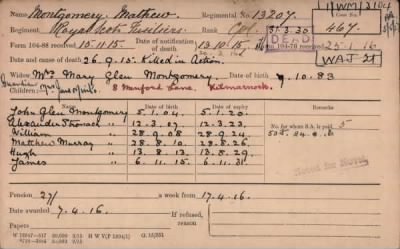 Name Montgomery. Mathew. Regimental No. 13207.
WM/2104
Case No.
467
Regiment Royal Scots Fusiliers Rank Cpl.
Form 104-88 received 15.11.15. Date of notification of death 13.10.15 104-76 received 25.1.16
DEAD
WAJ
Date and cause of death 26.9.15. Killed in Action.
Widow Mrs Mary Glen Montgomery. 7.10.83
Children: 8 Manford Lane, Kilmarnock.
Date of birth Date of expiry
Remarks
John Glen Montgomery 5.1.04. 5.1.20.
Alexander Stronack " 12.3.07. 12.3.23.
William " 28.9.08. 28.9.24.
Matthew Murray " 28.8.10. 28.8.26.
Hugh " 13.8.13. 13.8.29.
James " 6.11.15. 6.11.31.
No. for whom S.A. is paid 5
Noted for Novel
Pension 27/ a week from 17.4.16.
Date awarded 7.4.16. If refused, reason
Papers
H W V(P 1894/1)